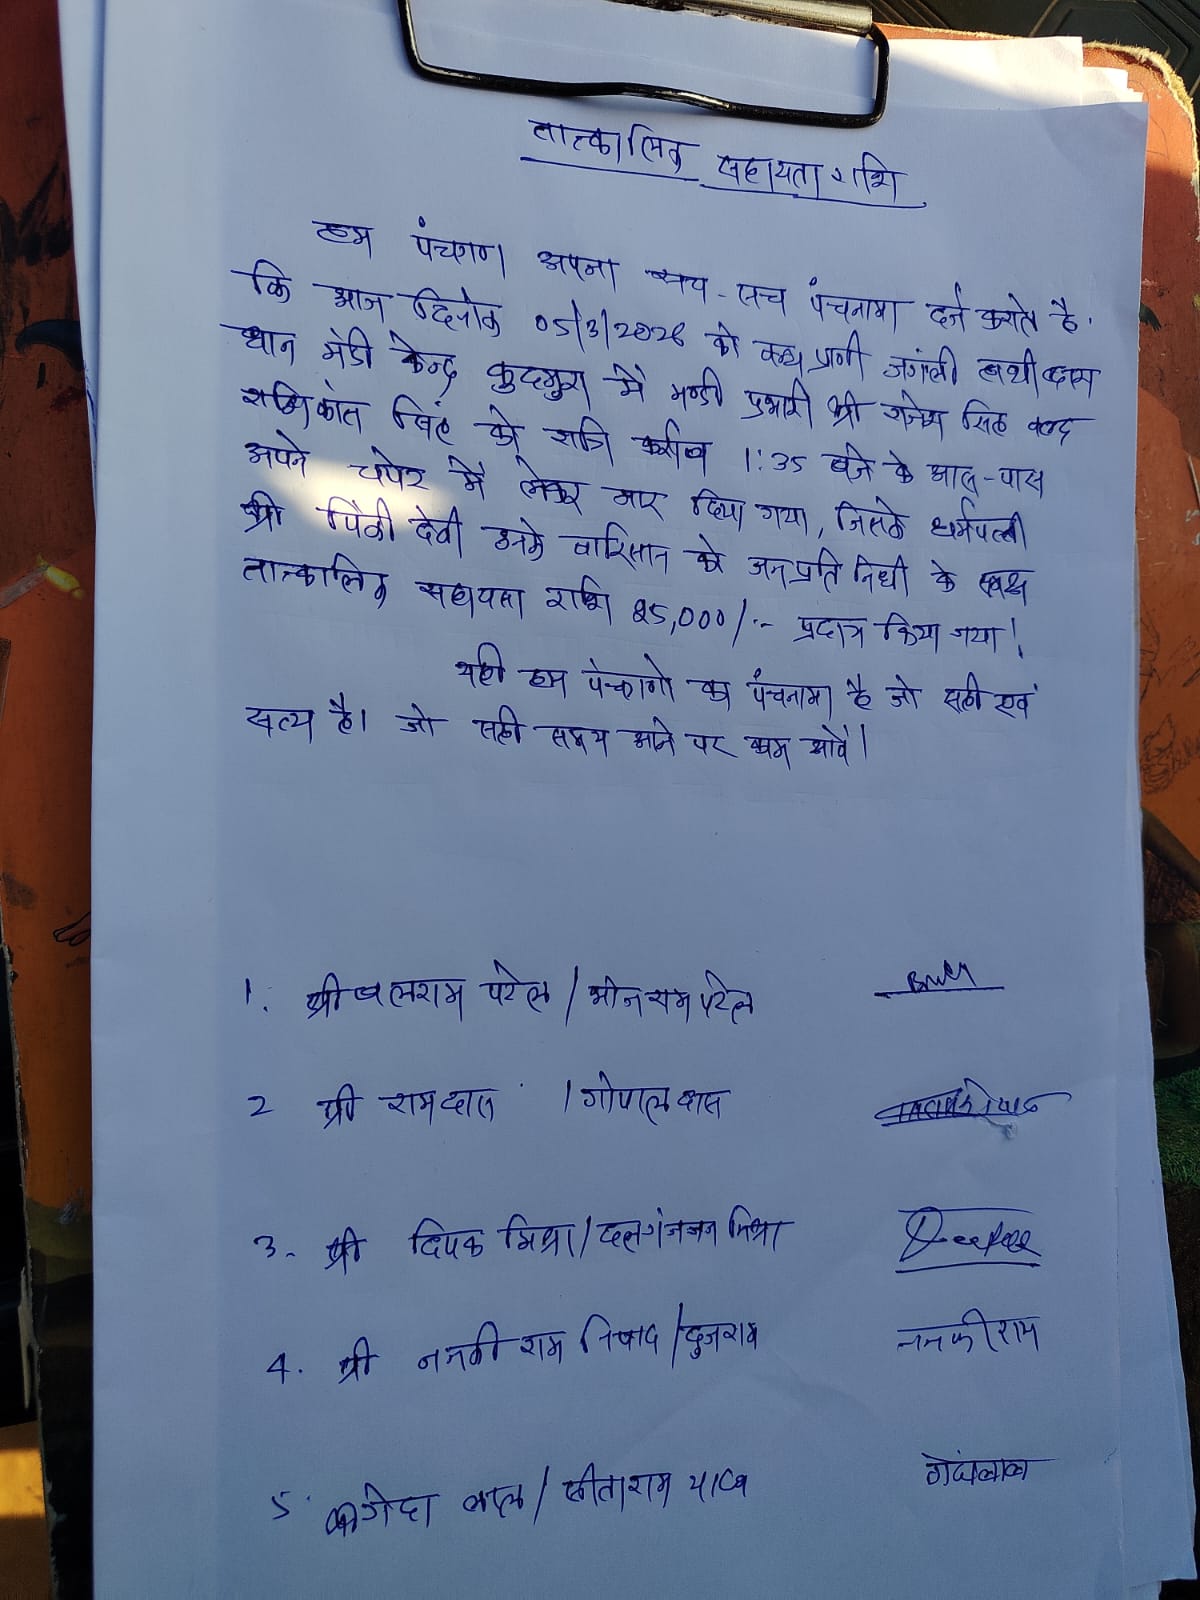 तात्कालिक सहायता राशि
हम पंचगण अपना सच-सच पंचनामा दर्ज कराते है.
कि आज दिनांक 05/3/2026 को वन्य प्राणी जगंली हाथी द्वारा
धान मंडी केन्द्र कुदमुरा में मण्डी प्रभारी श्री राजेश सिंह वल्द
शशिकांत सिंह को रात्रि करीब 1:35 बजे के आस-पास
अपने चपेट में लेकर मार दिया गया, जिसके धर्मपत्नी
श्री पिंकी देवी उनके वारिसान को जनप्रतिनिधी के समक्ष
तात्कालिक सहायता राशि 25,000/- प्रदान किया गया।
यही हम पंचगणो का पंचनामा है जो सही एवं
सत्य है। जो सही समय आने पर काम आवें।
1. श्री बलराम पटेल / भोजराम पटेल
2 श्री रामदास / गोपाल दास
3. श्री दिपक मिश्रा / दलगंजजन मिश्रा Deepak
4. श्री ननकी राम निषाद / दुजराम ननकीराम
5. गेंदा लाल / सीताराम यादव गेंदालाल